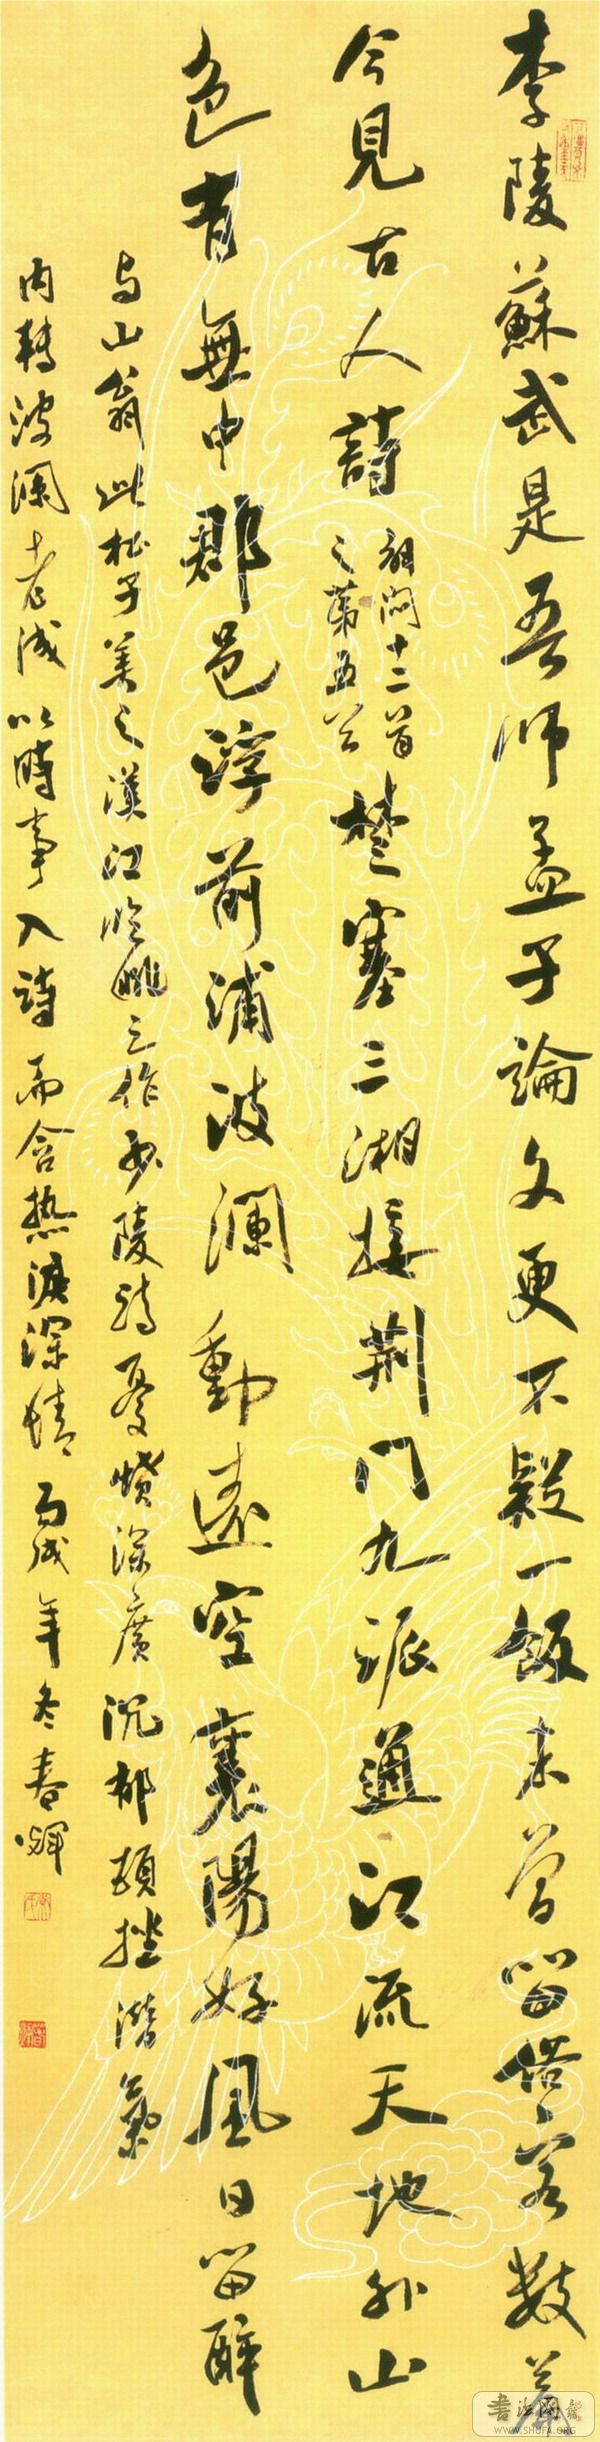 李陵蘇武是吾师孟子論文更不疑一飯未曾留俗客数篇
今見古人詩
解闷十二首
之第五首
楚塞三湘接荆门九派通江流天地外山
色有無中郡邑浮前浦波瀾動遠空襄陽好風日留醉
与山翁此杜子美之漢江临眺之作少陵诗憂愤深廣沉郁頓挫潜氣
内轉波澜老成以時事入詩而含热淚深情丙戌年冬春暉
書法网
WWW.SHUFA.ORG